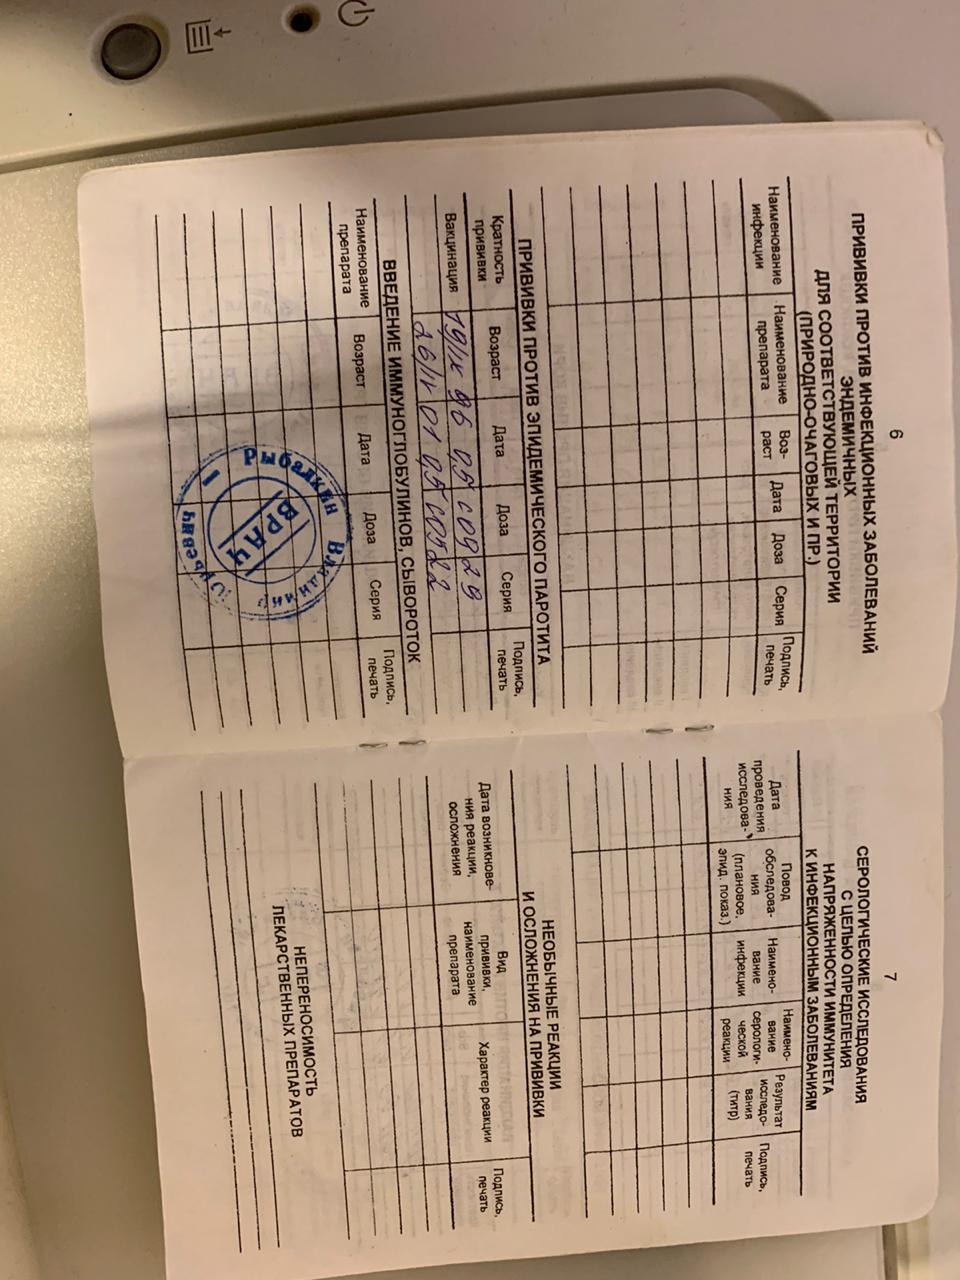 6
ПРИВИВКИ ПРОТИВ ИНФЕКЦИОННЫХ ЗАБОЛЕВАНИЙ
ЭНДЕМИЧНЫХ
ДЛЯ СООТВЕТСТВУЮЩЕЙ ТЕРРИТОРИИ
(ПРИРОДНО-ОЧАГОВЫХ И ПР.)
Наименование инфекции Наименование препарата Воз-раст Дата Доза Серия Подпись, печать
ПРИВИВКИ ПРОТИВ ЭПИДЕМИЧЕСКОГО ПАРОТИТА
Кратность прививки Возраст Дата Доза Серия Подпись, печать
Вакцинация 19/IX 96 0,5 с0929
26/IV 01 0,5 с0522
ВВЕДЕНИЕ ИММУНОГЛОБУЛИНОВ, СЫВОРОТОК
Наименование препарата Возраст Дата Доза Серия Подпись, печать
Рыбалкин
ВРАЧ
7
СЕРОЛОГИЧЕСКИЕ ИССЛЕДОВАНИЯ
С ЦЕЛЬЮ ОПРЕДЕЛЕНИЯ
НАПРЯЖЕННОСТИ ИММУНИТЕТА
К ИНФЕКЦИОННЫМ ЗАБОЛЕВАНИЯМ
Дата проведения исследова-ния Повод обследова-ния (плановое, эпид. показ.) Наимено-вание инфекции Наимено-вание серологи-ческой реакции Результат исследо-вания (титр) Подпись, печать
НЕОБЫЧНЫЕ РЕАКЦИИ
И ОСЛОЖНЕНИЯ НА ПРИВИВКИ
Дата возникнове-ния реакции, осложнения Вид прививки, наименование препарата Характер реакции Подпись, печать
НЕПЕРЕНОСИМОСТЬ
ЛЕКАРСТВЕННЫХ ПРЕПАРАТОВ